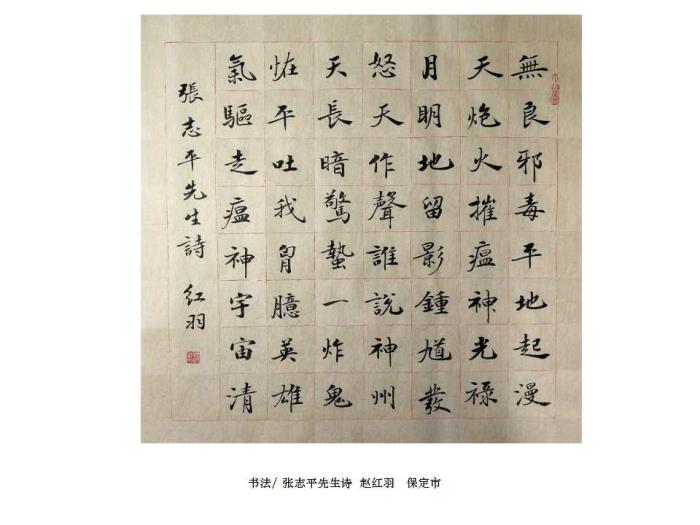 無良邪毒平地起漫
天炮火摧瘟神光禄
月明地留影鍾馗發
怒天作聲誰說神州
天長暗驚蟄一炸鬼
恠平吐我胷臆英雄
氣驅走瘟神宇宙清
張志平先生詩 红羽
书法/ 张志平先生诗 赵红羽 保定市